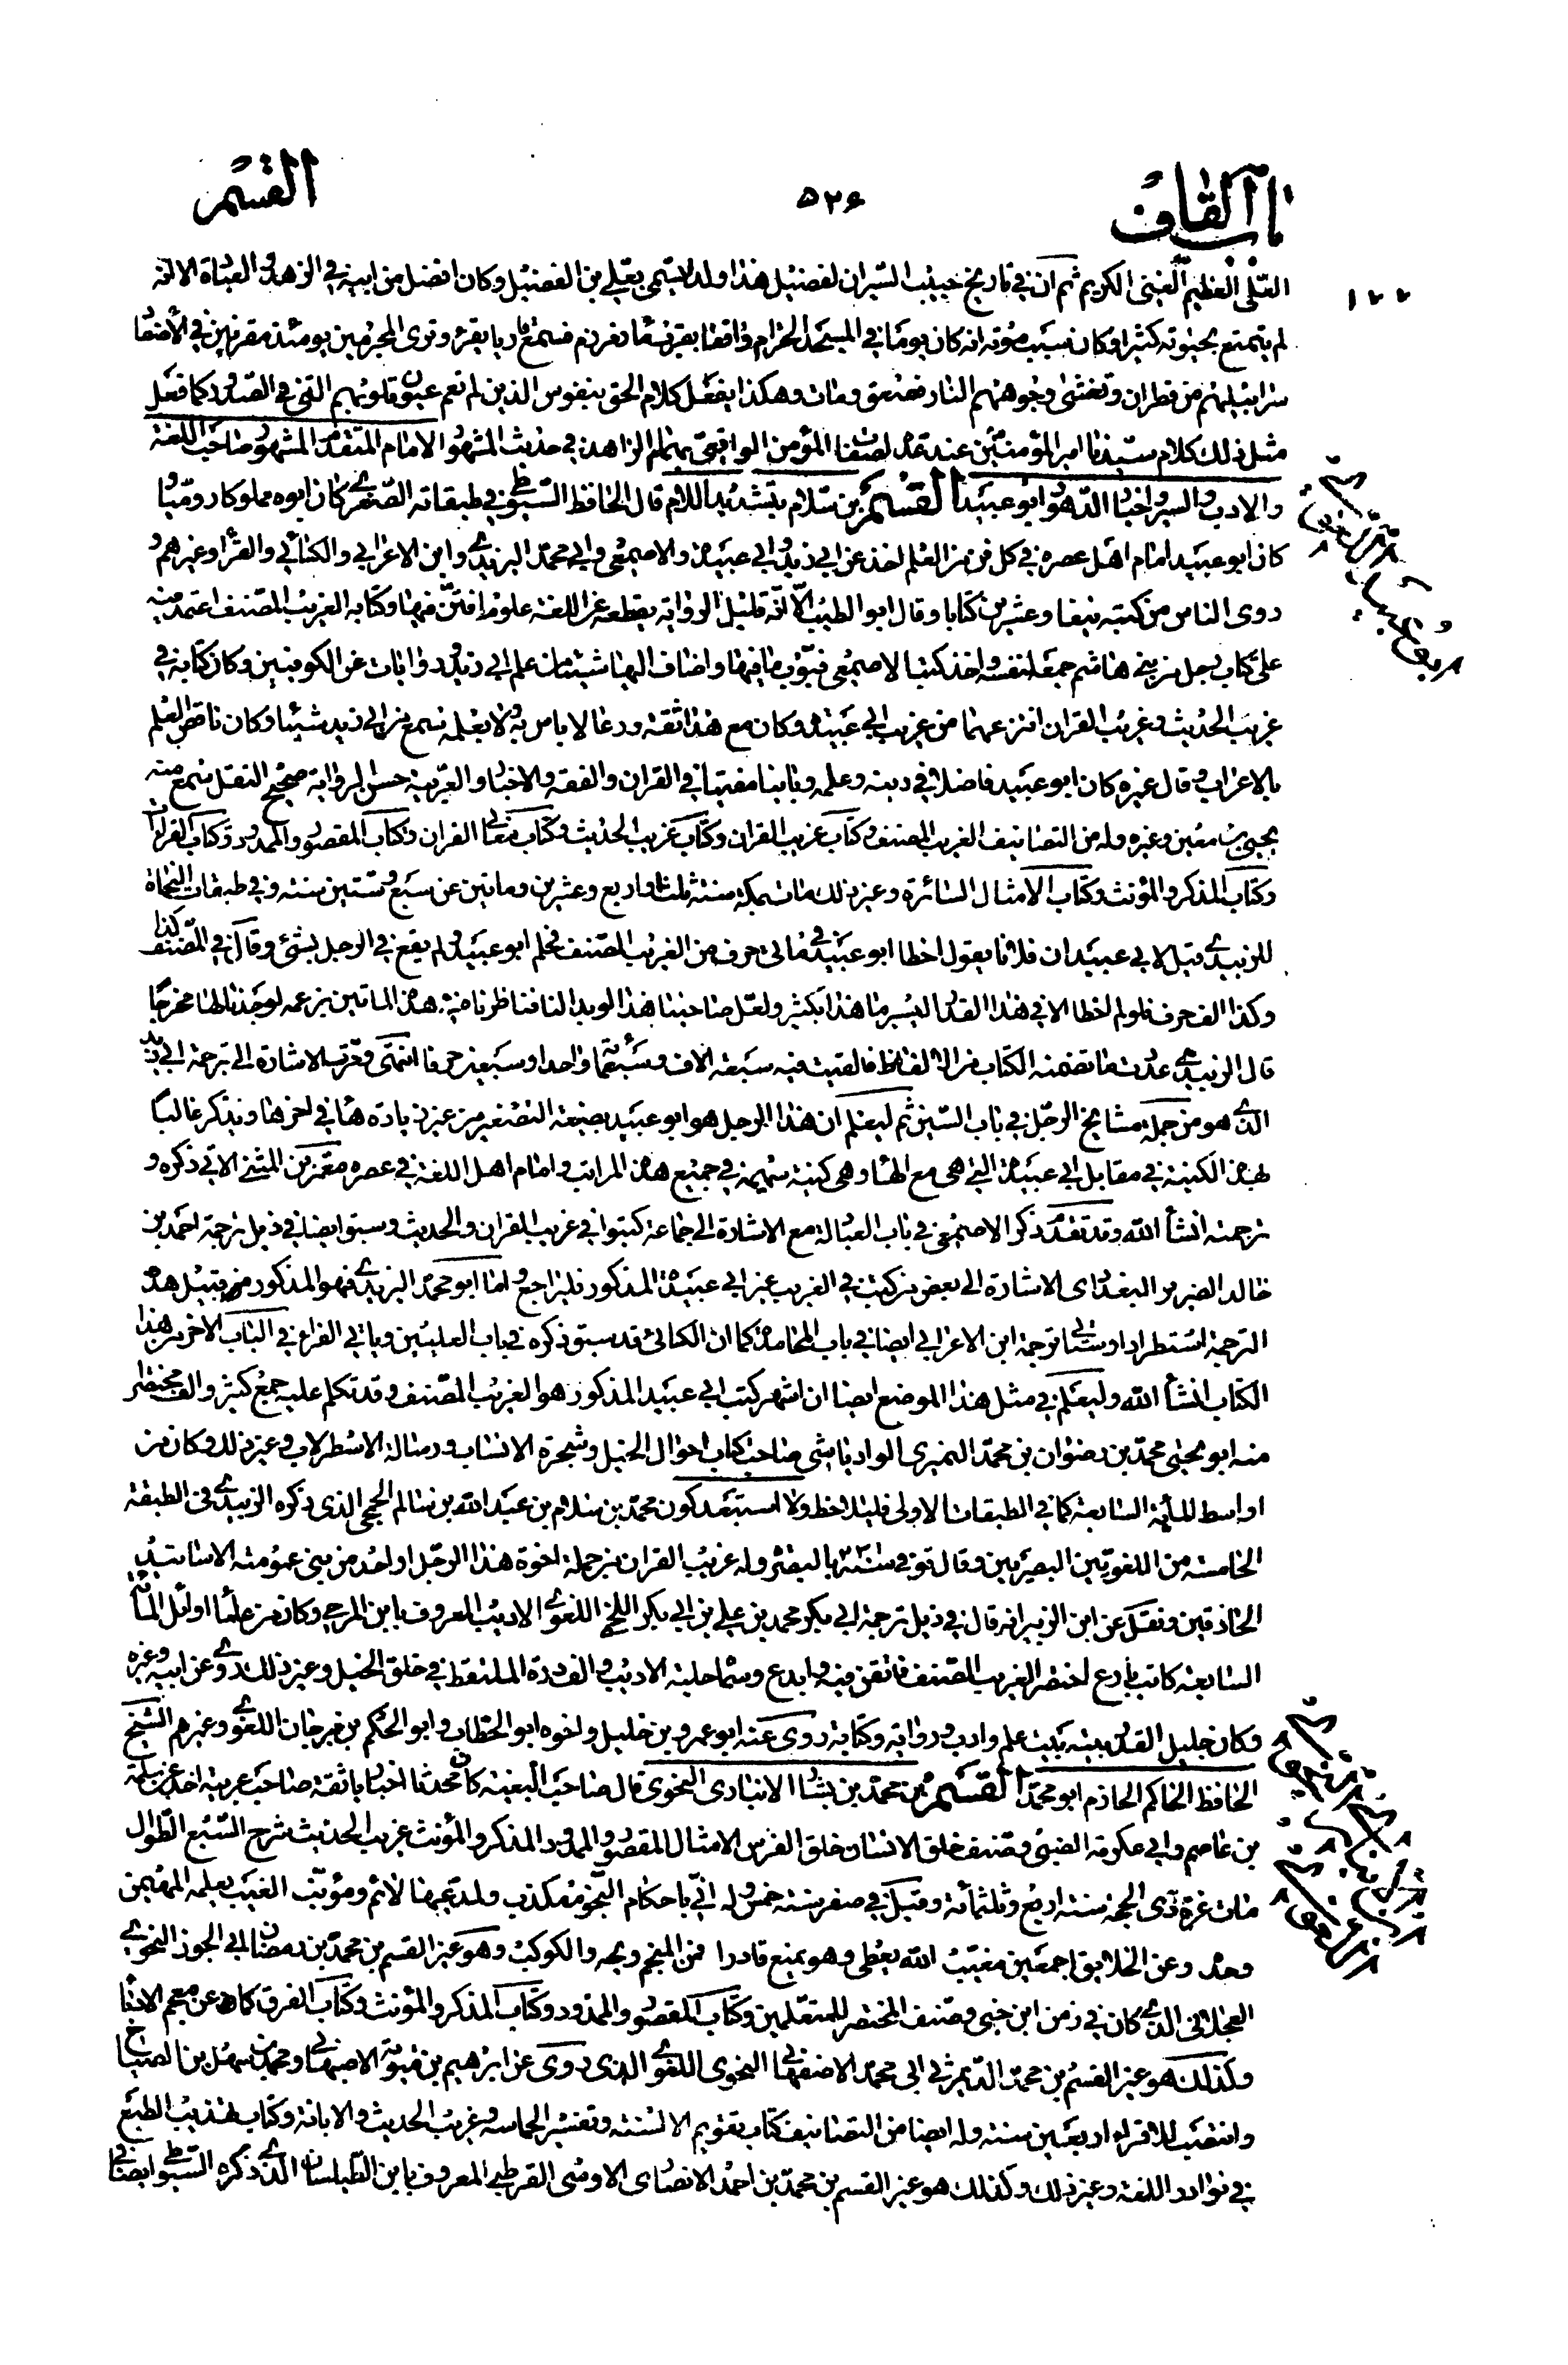 باب القاف
۵۲۶
القسم
العلى العظيم الغنى الكريم ثم ان فى تاريخ حبيب السير ان لفضيل هذا ولد يسمى بعلى بن الفضيل وكان افضل من ابيه فى الزهد والعبادة الا انه
لم يتمتع بحيوته كثيرا وكان سبب موته انه كان يوما فى المسجد الحرام واقفا بقرب ماء زمزم فسمع قاريا يقرء وترى المجرمين يومئذ مقرنين فى الأصفاد
سرابيلهم من قطران وتغشى وجوههم النار فصعق ومات وهكذا يفعل كلام الحق بنفوس الذين لم تعم عيون قلوبهم التى فى الصدور كما فعل
مثل ذلك كلام سيدنا امير المؤمنين عند عده لصفات المؤمن الواقعى بهمام الزاهد فى حديث المشهور الامام المتقدم المشهور صاحب اللغة
والادب والسير واخبار الدهور ابو عبيد القسم بن سلام بتشديد اللام قال الحافظ السيوطى فى طبقاته الصغرى كان ابوه مملوكا روميا
كان ابو عبيد امام اهل عصره فى كل فن من العلم اخذ عن ابى زيد وابى عبيدة والاصمعى وابى محمد اليزيدى وابن الاعرابى والكسائى والفراء وغيرهم و
روى الناس من كتبه نيفا وعشرين كتابا وقال ابو الطيب الا انه قليل الرواية يقطعه عن اللغة علوم افتن فيها وكتابه الغريب المصنف اعتمد فيه
على كتاب رجل من بنى هاشم جمعه لنفسه واخذ كتب الاصمعى فبوب ما فيها واضاف اليها شيئا من علم ابى زيد وروايات عن الكوفيين وكان كتابه فى
غريب الحديث وغريب القران انتزعهما من غريب ابى عبيدة وكان مع هذا ثقة ورعا لا باس به ولا يعلم سمع من ابى زيد شيئا وكان ناقص العلم
بالاعراب وقال غيره كان ابو عبيد فاضلا فى دينه وعلمه ربانيا مفتيا فى القران والفقه والاخبار والعربية حسن الرواية صحيح النقل سمع منه
يحيى بن معين وغيره وله من التصانيف الغريب المصنف وكتاب غريب القران وكتاب غريب الحديث وكتاب معانى القران وكتاب المقصور والممدود وكتاب القراءات
وكتاب المذكر والمؤنث وكتاب الامثال السائرة وغير ذلك مات بمكة سنة ثلث او اربع وعشرين ومأتين عن سبع وستين سنة وفى طبقات النحاة
للزبيدى قيل لابى عبيد ان فلانا يقول اخطا ابو عبيد فى مأتى حرف من الغريب المصنف فحلم ابو عبيد ولم يقع فى الرجل بشئ وقال فى المصنف كذا
وكذا الف حرف فلو لم اخطا الا فى هذا القدر اليسير ما هذا بكثير ولعل صاحبنا هذا لو بدا لنا فناظرناه فى هذه المأتين بزعمه لوجدنا لها مخرجا
قال الزبيدى عددت ما تضمنه الكتاب من الالفاظ فالفيت فيه سبعة الاف وسبعمأة واحدا وسبعين حرفا انتهى وقد مرت الاشارة الى ترجمة ابى زيد
الذى هو من جملة مشايخ الرجل فى باب السين ثم ليعلم ان هذا الرجل هو ابو عبيد بصيغة التصغير من غير زيادة هاء فى اخرها ويذكر غالبا
بهذه الكنية فى مقابل ابى عبيدة التى هى مع الهاء وهى كنية سهيمه فى جميع هذه المراتب وامام اهل اللغة فى عصره معمر بن المثنى الاتى ذكره و
ترجمته انشأ الله وقد تقدم ذكر الاصمعى فى باب العبادلة مع الاشارة الى جماعة كتبوا فى غريب القران والحديث وسبق ايضا فى ذيل ترجمة احمد بن
خالد الضرير البغدادى الاشارة الى بعض من كتب فى الغريب غير ابى عبيدة المذكور فليراجع واما ابو محمد اليزيدى فهو المذكور من قبيل هذه
الترجمة استطرادا وستأتى ترجمة ابن الاعرابى ايضا فى باب المحامدة كما ان الكسائى قد سبق ذكره فى باب العليين وياتى الفراء فى الباب الاخر من هذا
الكتاب انشأ الله وليعلم فى مثل هذا الموضع ايضا ان اشهر كتب ابى عبيد المذكور هو الغريب المصنف وقد تكلم عليه جمع كثير والف مختصر
منه ابو يحيى محمد بن رضوان بن محمد النميرى الوادياشى صاحب كتاب احوال الخيل وشجرة الانساب ورسالة الاسطرلاب وغير ذلك وكان من
اواسط المأية السابعة كما فى الطبقات الاولى فليلاحظ ولا استبعد كون محمد بن سلام بن عبد الله بن سالم الجمحى الذى ذكره الزبيدى فى الطبقة
الخامسة من اللغويين البصريين وقال توفى سنة بالبصرة وله غريب القران من جملة اخوة هذا الرجل او لعد من بنى عمومته الاساتيد
الحاذقين ونقل عن ابن الزبير انه قال فى ذيل ترجمة ابى بكر محمد بن على بن ابى بكر اللخمى اللغوى الاديب المعروف بابن المرخى وكان من علماء اوائل المأة
السابعة كاتب بارع اختصر الغريب المصنف فاتقن فيه وابدع وسماه حلية الاديب والف درة الملتقط فى خلق الخيل وغير ذلك روى عن ابيه وغيره
وكان جليل القدر بيته بيت علم وادب ورواية وكتابة روى عنه ابو عمرو بن خليل واخوه ابو الخطاب وابو الحكم بن فرجان اللغوى وغيرهم الشيخ
الحافظ الحاكم الحازم ابو محمد القسم بن محمد بن بشار الانبارى النحوى قال صاحب البغية كان محدثا اخباريا ثقة صاحب عربية اخذ عن سلمة
بن عاصم وابى عكرمة الضبى وصنف خلق الانسان خلق الفرس الامثال المقصور والممدود المذكر والمؤنث غريب الحديث شرح السبع الطوال
مات غرة ذى الحجة سنة اربع وثلثمأئة وقيل فى صفر سنة خمس وله انى باحكام النجوم مكذب ولمدعيها لائم ومؤنب الغيب يعلمه المهيمن
وحده وعن الخلايق اجمعين مغيب الله يعطى وهو يمنع قادرا فمن المنجم ويحه والكوكب وهو غير القسم بن محمد بن رمضان ابى الجود النحوى
العجلانى الذى كان فى زمن ابن جنى وصنف المختصر للمتعلمين وكتاب المقصور والممدود وكتاب المذكر والمؤنث وكتاب الفرق كما عن معجم الادبا
وكذلك هو غير القسم بن محمد الديمرتى ابى محمد الاصفهانى النحوى اللغوى الذى روى عن ابرهيم بن متويه الاصبهانى ومحمد بن سهل بن الصباح
وانتصب للاقراء اربعين سنة وله ايضا من التصانيف كتاب تقويم الالسنة وتفسير الحماسة وغريب الحديث والابانة وكتاب تهذيب الطبع
فى نوادر اللغة وغير ذلك وكذلك هو غير القسم بن محمد بن احمد الانصارى الاوسى القرطبى المعروف بابن الطيلسان الذى ذكره السيوطى ايضا فى